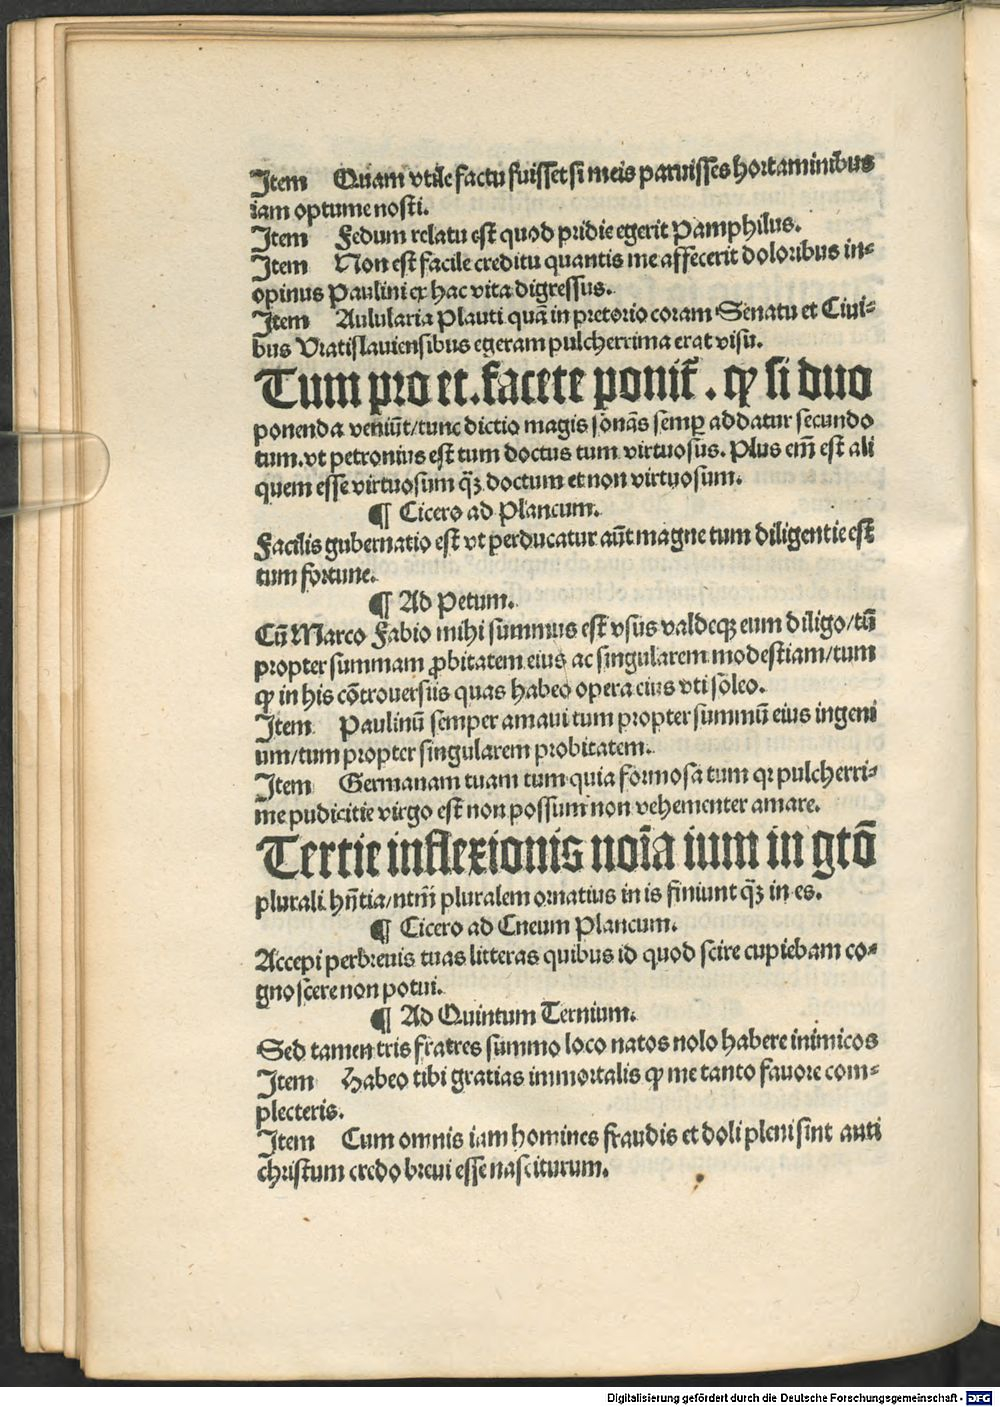 Item Quam vtile factu fuisset si meis paruisses hortaminibus
iam optume nosti.
Item Fedum relatu est quod pridie egerit Pamphilus.
Item Non est facile creditu quantis me affecerit doloribus in-
opinus Paulini ex hac vita digressus.
Item Aulularia Plauti quā in pretorio coram Senatu et Ciui-
bus Vratislauiensibus egeram pulcherrima erat visu.
Tum pro et. facete poniť. ꝙ si duo
ponenda veniūt/tunc dictio magis sonās semꝑ addatur secundo
tum. vt petronius est tum doctus tum virtuosus. Plus em̄ est ali
quem esse virtuosum q̈ꝫ doctum et non virtuosum.
¶ Cicero ad Plancum.
Facilis gubernatio est vt perducatur aūt magne tum diligentie est
tum fortune.
¶ Ad Petum.
Cū Marco Fabio mihi summus est vsus valdeqꝫ eum diligo/tū
propter summam ꝓbitatem eius ac singularem modestiam/tum
ꝙ in his cōtrouersiis quas habeo opera eius vti soleo.
Item Paulinū semper amaui tum propter summū eius ingeni
um/tum propter singularem probitatem.
Item Germanam tuam tum quia formosa tum qꝛ pulcherri-
me pudicitie virgo est non possum non vehementer amare.
Tertie inflexionis noīa ium in gtō
plurali hn̄tia/ntm̄ pluralem ornatius in is finiunt q̈ꝫ in es.
¶ Cicero ad Cneum Plancum.
Accepi perbreuis tuas litteras quibus id quod scire cupiebam co-
gnoscere non potui.
¶ Ad Quintum Ternium.
Sed tamen tris fratres summo loco natos nolo habere inimicos
Item Habeo tibi gratias immortalis ꝙ me tanto fauore com-
plecteris.
Item Cum omnis iam homines fraudis et doli pleni sint anti
christum credo breui esse nasciturum.
Digitalisierung gefördert durch die Deutsche Forschungsgemeinschaft - DFG